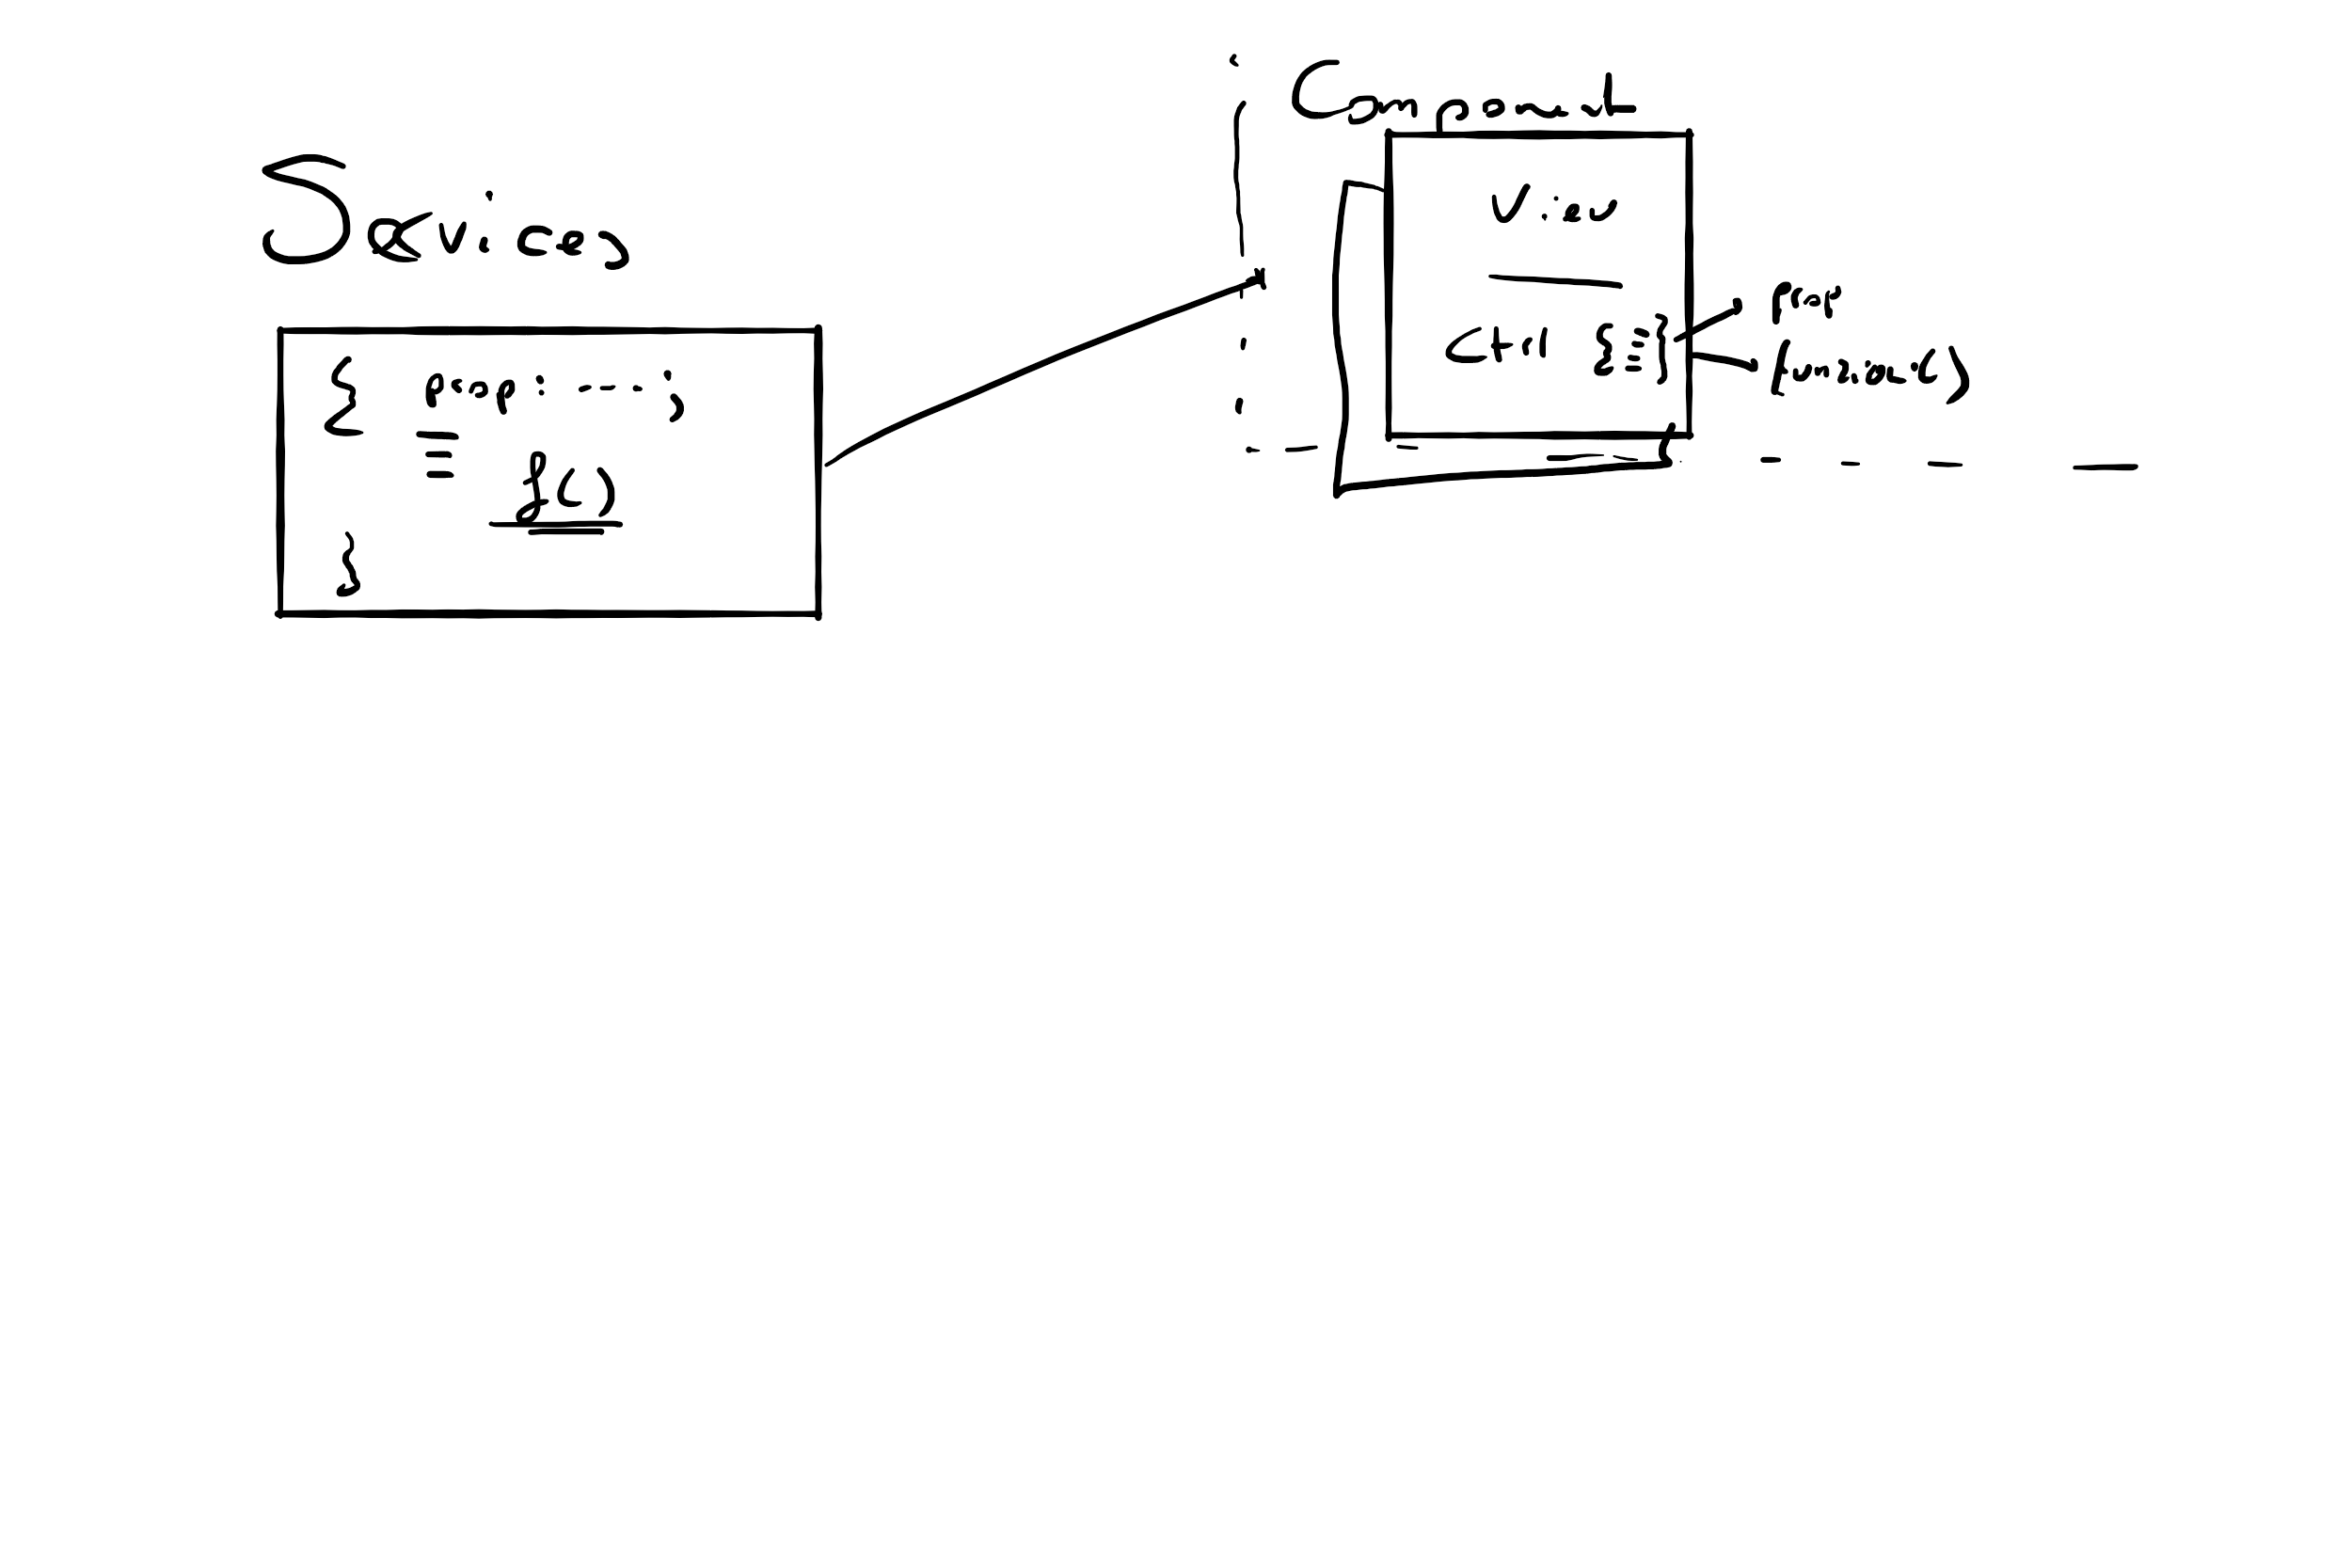 Services
{ prop: ---;
f()
}
Component
View
Ctrl {≡}
prop
function()